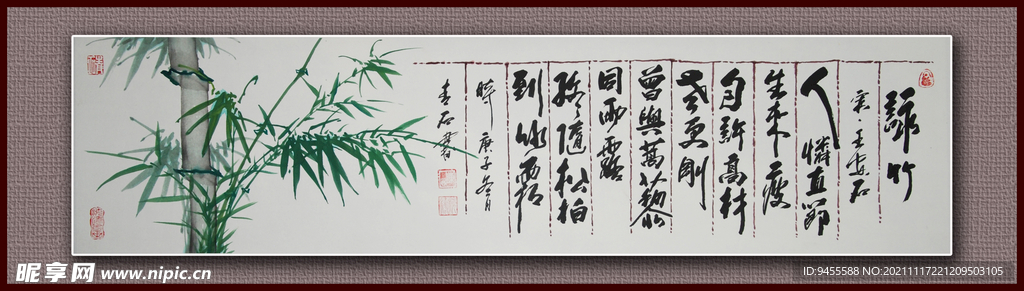 詠竹
宋 王安石
人憐直節
生来瘦
自許高材
老更剛
曾與蒿藜
同雨露
終隨松柏
到冰霜
時庚子冬月
石書
昵享网 www.nipic.cn
ID:9455588 NO:20211117221209503105